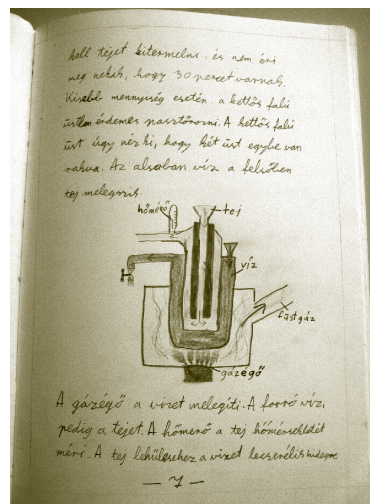 kell tejet kitermelni. és nem éri
meg nekik, hogy 30 percet várnak.
Kisebb mennyiség esetén a kettős falú
üstben érdemes pasztőrözni. A kettős falú
üst úgy néz ki, hogy két üst egybe van
rakva. Az alsóban víz a felsőben
tej melegszik.
hőmérő
tej
víz
füstgáz
gázégő
A gázégő a vizet melegíti. A forró víz,
pedig a tejet. A hőmérő a tej hőmérsékletét
méri. A tej lehüléséhez a vizet lecserélik hidegre
— 7 —